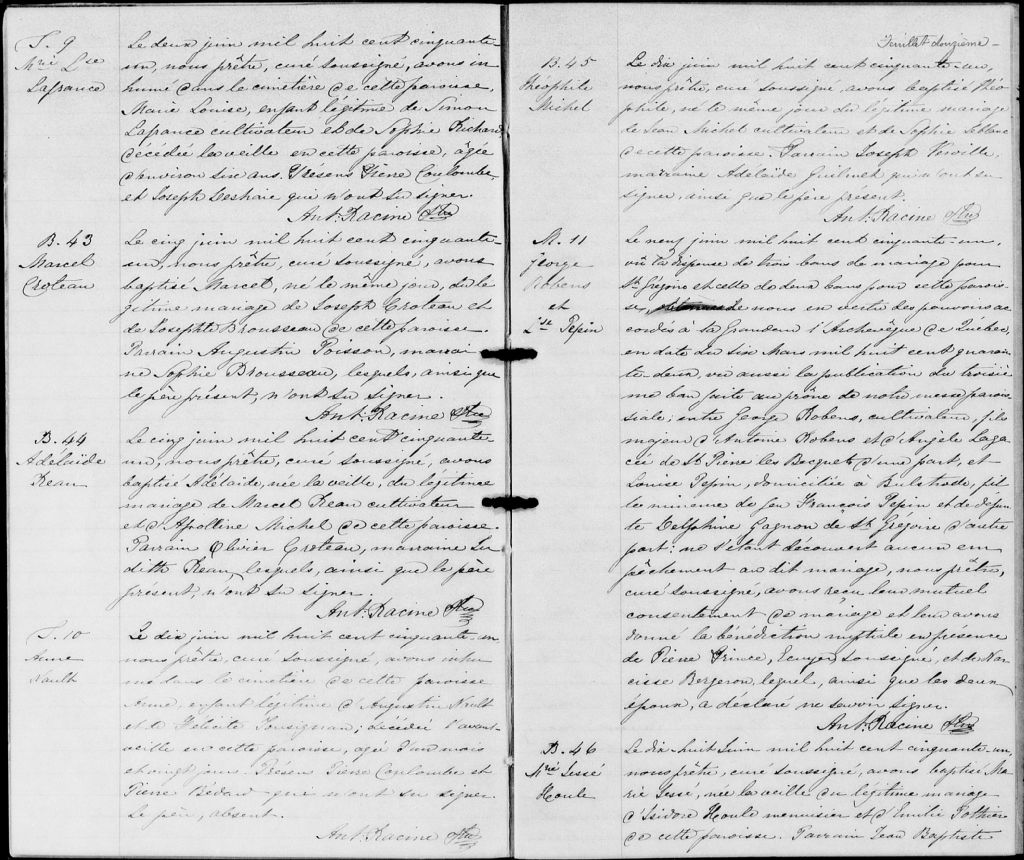 S. 9
Mrie Lse
Lafrance
Le deux juin mil huit cent cinquante-
un, nous prêtre, curé soussigné, avons in
humé dans le cimetière de cette paroisse,
Marie Louise, enfant légitime de Simon
Lafrance cultivateur et de Sophie Richard
décédée la veille en cette paroisse, âgée
d'environ six ans. Présens Pierre Coulombe,
et Joseph Deshaie qui n'ont su signer.
Ant. Racine Ptre
B. 43
Marcel
Croteau
Le cinq juin mil huit cent cinquante-
un, nous prêtre, curé soussigné, avons
baptisé Marcel, né le même jour, du lé
gitime mariage de Joseph Croteau et
de Josephte Brousseau de cette paroisse.
Parrain Augustin Poisson, marrai
ne Sophie Brousseau, lesquels, ainsi que
le père présent, n'ont su signer.
Ant. Racine Ptre
B. 44
Adelaïde
Reau
Le cinq juin mil huit cent cinquante-
un, nous prêtre, curé soussigné, avons
baptisé Adélaide, née la veille, du légitime
mariage de Marcel Reau cultivateur
et d'Apolline Michel de cette paroisse.
Parrain Olivier Croteau, marraine Ju
dith Reau, lesquels, ainsi que le père
présent, n'ont su signer.
Ant. Racine Ptre
S. 10
Anne
Nault
Le dix juin mil huit cent cinquante-un
nous prêtre, curé soussigné, avons inhu
mé dans le cimetière de cette paroisse
Anne, enfant légitime d'Augustin Nault
et de Félicité Tousignan; décédée l'avant-
veille en cette paroisse, agé d'un mois
et vingt jours. Présens Pierre Coulombe et
Pierre Bedard qui n'ont su signer.
Le père, absent.
Ant. Racine Ptre
Feuillet douzième -
B. 45
Théophile
Michel
Le dix juin mil huit cent cinquante-un,
nous prêtre, curé soussigné, avons baptisé Théo
phile, né le même jour du légitime mariage
de Jean Michel cultivateur et de Sophie Leblanc
de cette paroisse. Parrain Joseph Verville,
marraine Adélaïde qui n'ont su
signer, ainsi que le père présent.
Ant. Racine Ptre
M. 11
George
Robens
et
Lse Pepin
Le neuf juin mil huit cent cinquante-un,
vu la dispense de trois bans de mariage pour
St Grégoire et celle de deux bans pour cette parois-
se, nous en vertu des pouvoirs ac
cordés à la Grandeur l'Archevêque de Québec,
en date du six Mars mil huit cent quaran
te-deux, vu aussi la publication du troisiè
me ban faite au prône de notre messe parois
siale, entre George Robens, cultivateur, fils
majeur d'Antoine Robens et d'Angèle Laga
cée de St Pierre les Becquets d'une part, et
Louise Pepin, domiciliée à Bulstrode, fil
le mineure de feu François Pepin et de défun
te Delphine Gagnon de St Grégoire d'autre
part: ne s'étant découvert aucun em
pêchement au dit mariage, nous prêtre,
curé soussigné, avons reçu leur mutuel
consentement de mariage et leur avons
donné la bénédiction nuptiale en présence
de Pierre Prince, Ecuyer soussigné, et de Nar
cisse Bergeron, lequel, ainsi que les deux
époux, a déclaré ne savoir signer.
Ant. Racine Ptre
B. 46
Mrie Jessé
Houle
Le dix-huit Juin mil huit cent cinquante-un,
nous prêtre, curé soussigné, avons baptisé Ma
rie Jessé, née la veille du légitime mariage
d'Isidore Houle menuisier et d'Emilie Pothier
de cette paroisse. Parrain Jean Baptiste